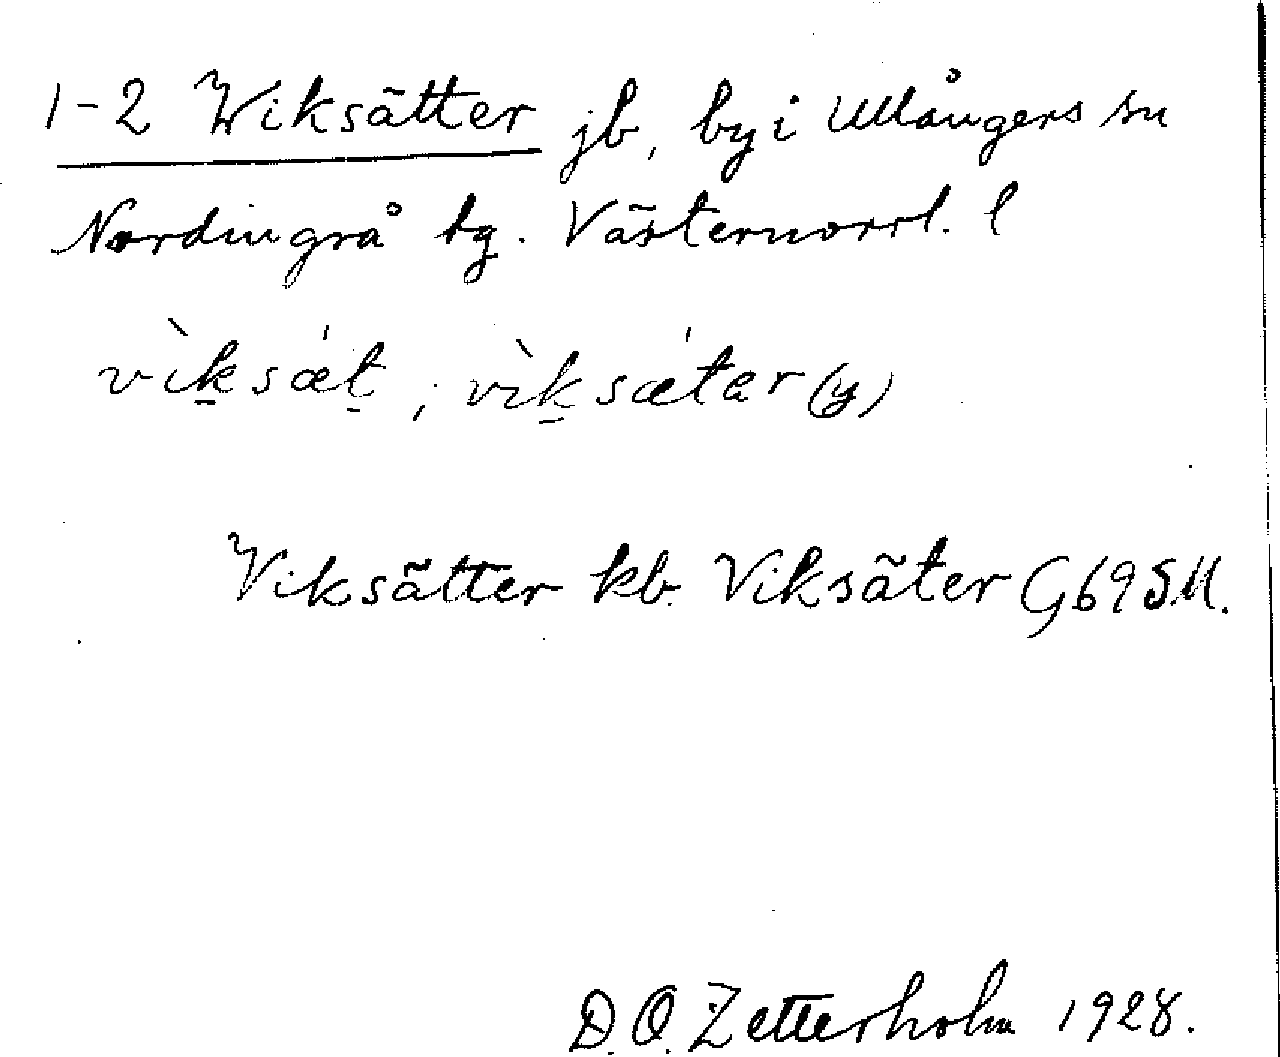 1-2 Wiksätter jb, by i Ullångers sn
Nordingrå tg. Västernorrl. l
vìk̠sæ̍t̠, vìk̠sæ̍tər (y)
Viksätter kb. Viksäter G69 SM.
D.O. Zetterholm 1928.